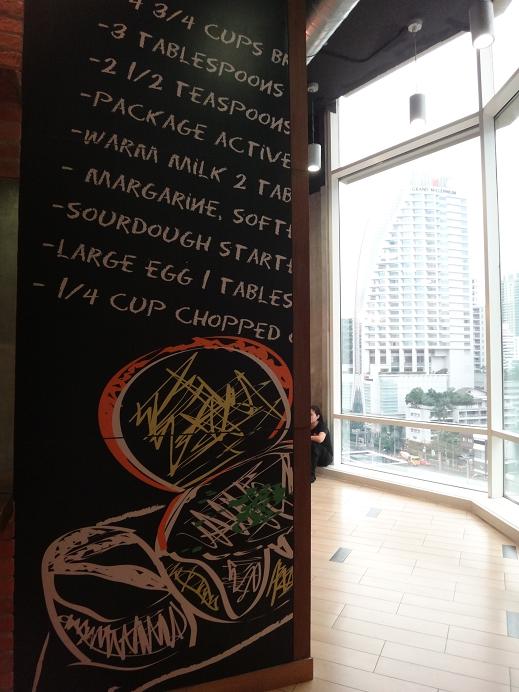 4 3/4 CUPS BR
-3 TABLESPOONS
-2 1/2 TEASPOONS
-PACKAGE ACTIVE
-WARM MILK 2 TAB
- MARGARINE, SOFT
-SOURDOUGH START
-LARGE EGG 1 TABLES
- 1/4 CUP CHOPPED
GRAND MILLENNIUM